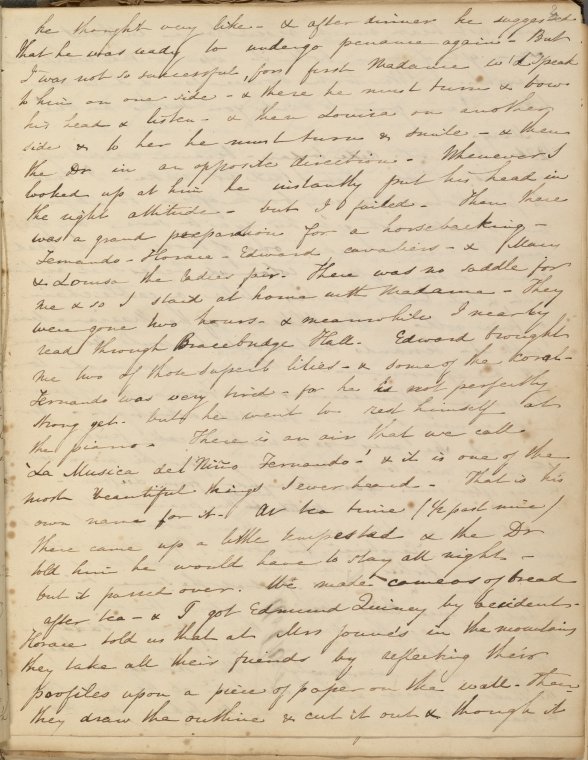 he thought very like - & after dinner he suggested
that he was ready to undergo penance again - But
I was not so successful, for first Madame wd speak
to him on one side - & there he must turn & bow
his head & listen - & then Louisa on another
side & to her he must turn & smile - & then
the Dr in an opposite direction - Whenever I
looked up at him he instantly put his head in
the right attitude - but I failed - Then there
was a grand preparation for a horsebacking -
Fernando - Horace - Edward cavaliers - & Mary
& Louisa the ladies fair. There was no saddle for
me & so I staid at home with Madame - They
were gone two hours - & meanwhile I nearly
read through Bracebridge Hall. Edward brought
me two of those superb lilies - & some of the
Fernando was very tired - for he is not perfectly
strong yet - but he went to rest himself at
the piano - There is an air that we call
"La Musica del Niño Fernando"! & it is one of the
most beautiful things I ever heard - That is his
own name for it - At tea time (½ past nine)
there came up a little tempestad & the Dr
told him he would have to stay all night -
but it passed over. We made cameos of bread
after tea - & I got Edmund Quincy by accident -
Horace told us that at Mrs in the mountains
they take all their friends by reflecting their
profiles upon a piece of paper on the wall - then
they draw the outline & cut it out & though it